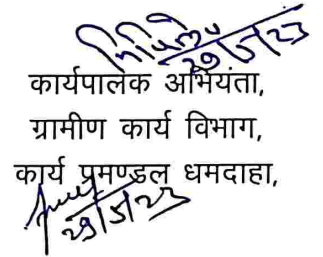 29/5/23
कार्यपालक अभियंता,
ग्रामीण कार्य विभाग,
कार्य प्रमण्डल धमदाहा,
29/5/23